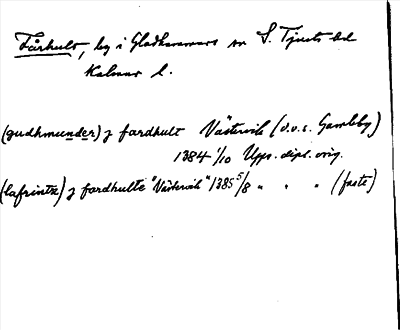 Fårhult, by i Gladhammars sn S. Tjusts hd
Kalmar l.
(gudhmunder) j fardhult Västervik (o.v.s. Gamleby)
1384 1/10 Upps. dipl. orig.
(lafrintz) j fardhulte "Västervik" 1385 5/8 " " " (faste)